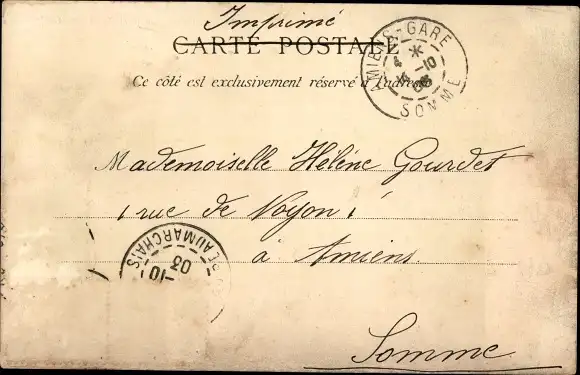 Imprimé
CARTE POSTALE
Ce côté est exclusivement réservé à l'adresse
AMIENS-GARE
4 * -10
03
SOMME
Mademoiselle Hélène Gourdet
1 rue de Noyon 1
à Amiens
Somme
AUMARCHAIS
-10
03